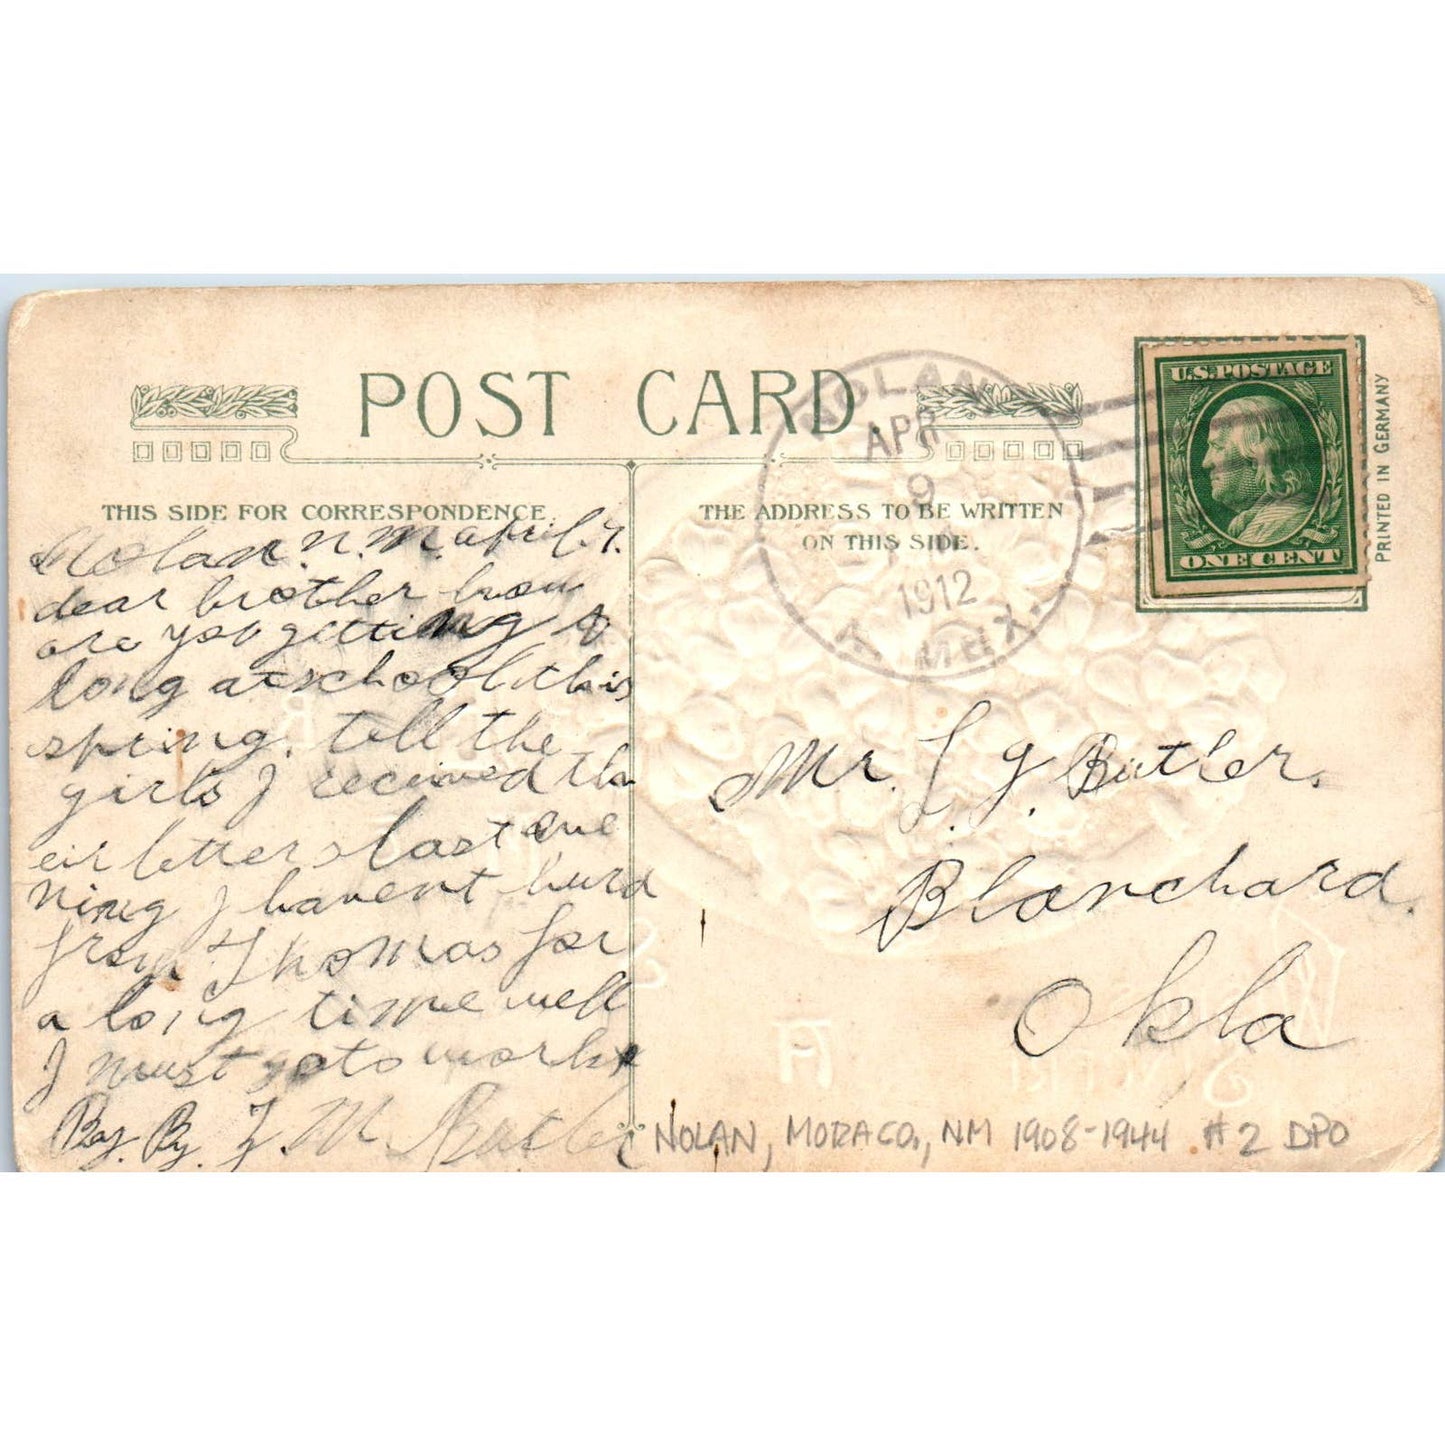 POST CARD.
THIS SIDE FOR CORRESPONDENCE.
THE ADDRESS TO BE WRITTEN
ON THIS SIDE.
NOLAN
APR
9
1912
N. MEX.
U.S. POSTAGE
ONE CENT
PRINTED IN GERMANY
Nolan. N. M. april. 7.
dear brother how
are you getting a
long at school this
spring. tell the
girls I received the
eir letters last eve
ning I havent hurd
from Thomas for
a long time well
I must go to work
By. By. J. M. Butler
Mr. L. G. Butler.
Blanchard.
Okla
NOLAN, MORA CO., NM 1908-1944 #2 DPO